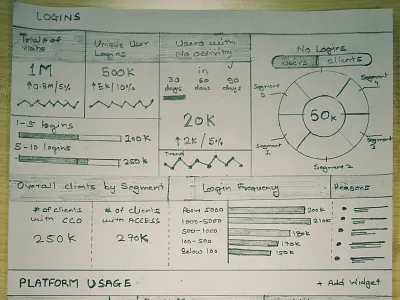 LOGINS
Total # of
Visits
1M
↑0.8M/5%
Unique User
Logins
500K
↑5K/10%
1-5 logins
200K
5-10 logins
250K
Users with
No activity
in
30 60 90
days days days
20K
↑2K/5%
Trend
No Logins
users clients
Segment
Segment
4
50K
Segment
1
Segment
3
Segment 2
Overall clients by Segment
# of clients
with CCO
250K
# of clients
with ACCESS
270K
Login Frequency
Above 5000 200K
1000-5000 210K
500-1000 180K
100-500 170K
Below 100 150K
Reasons
PLATFORM USAGE
+ Add Widget